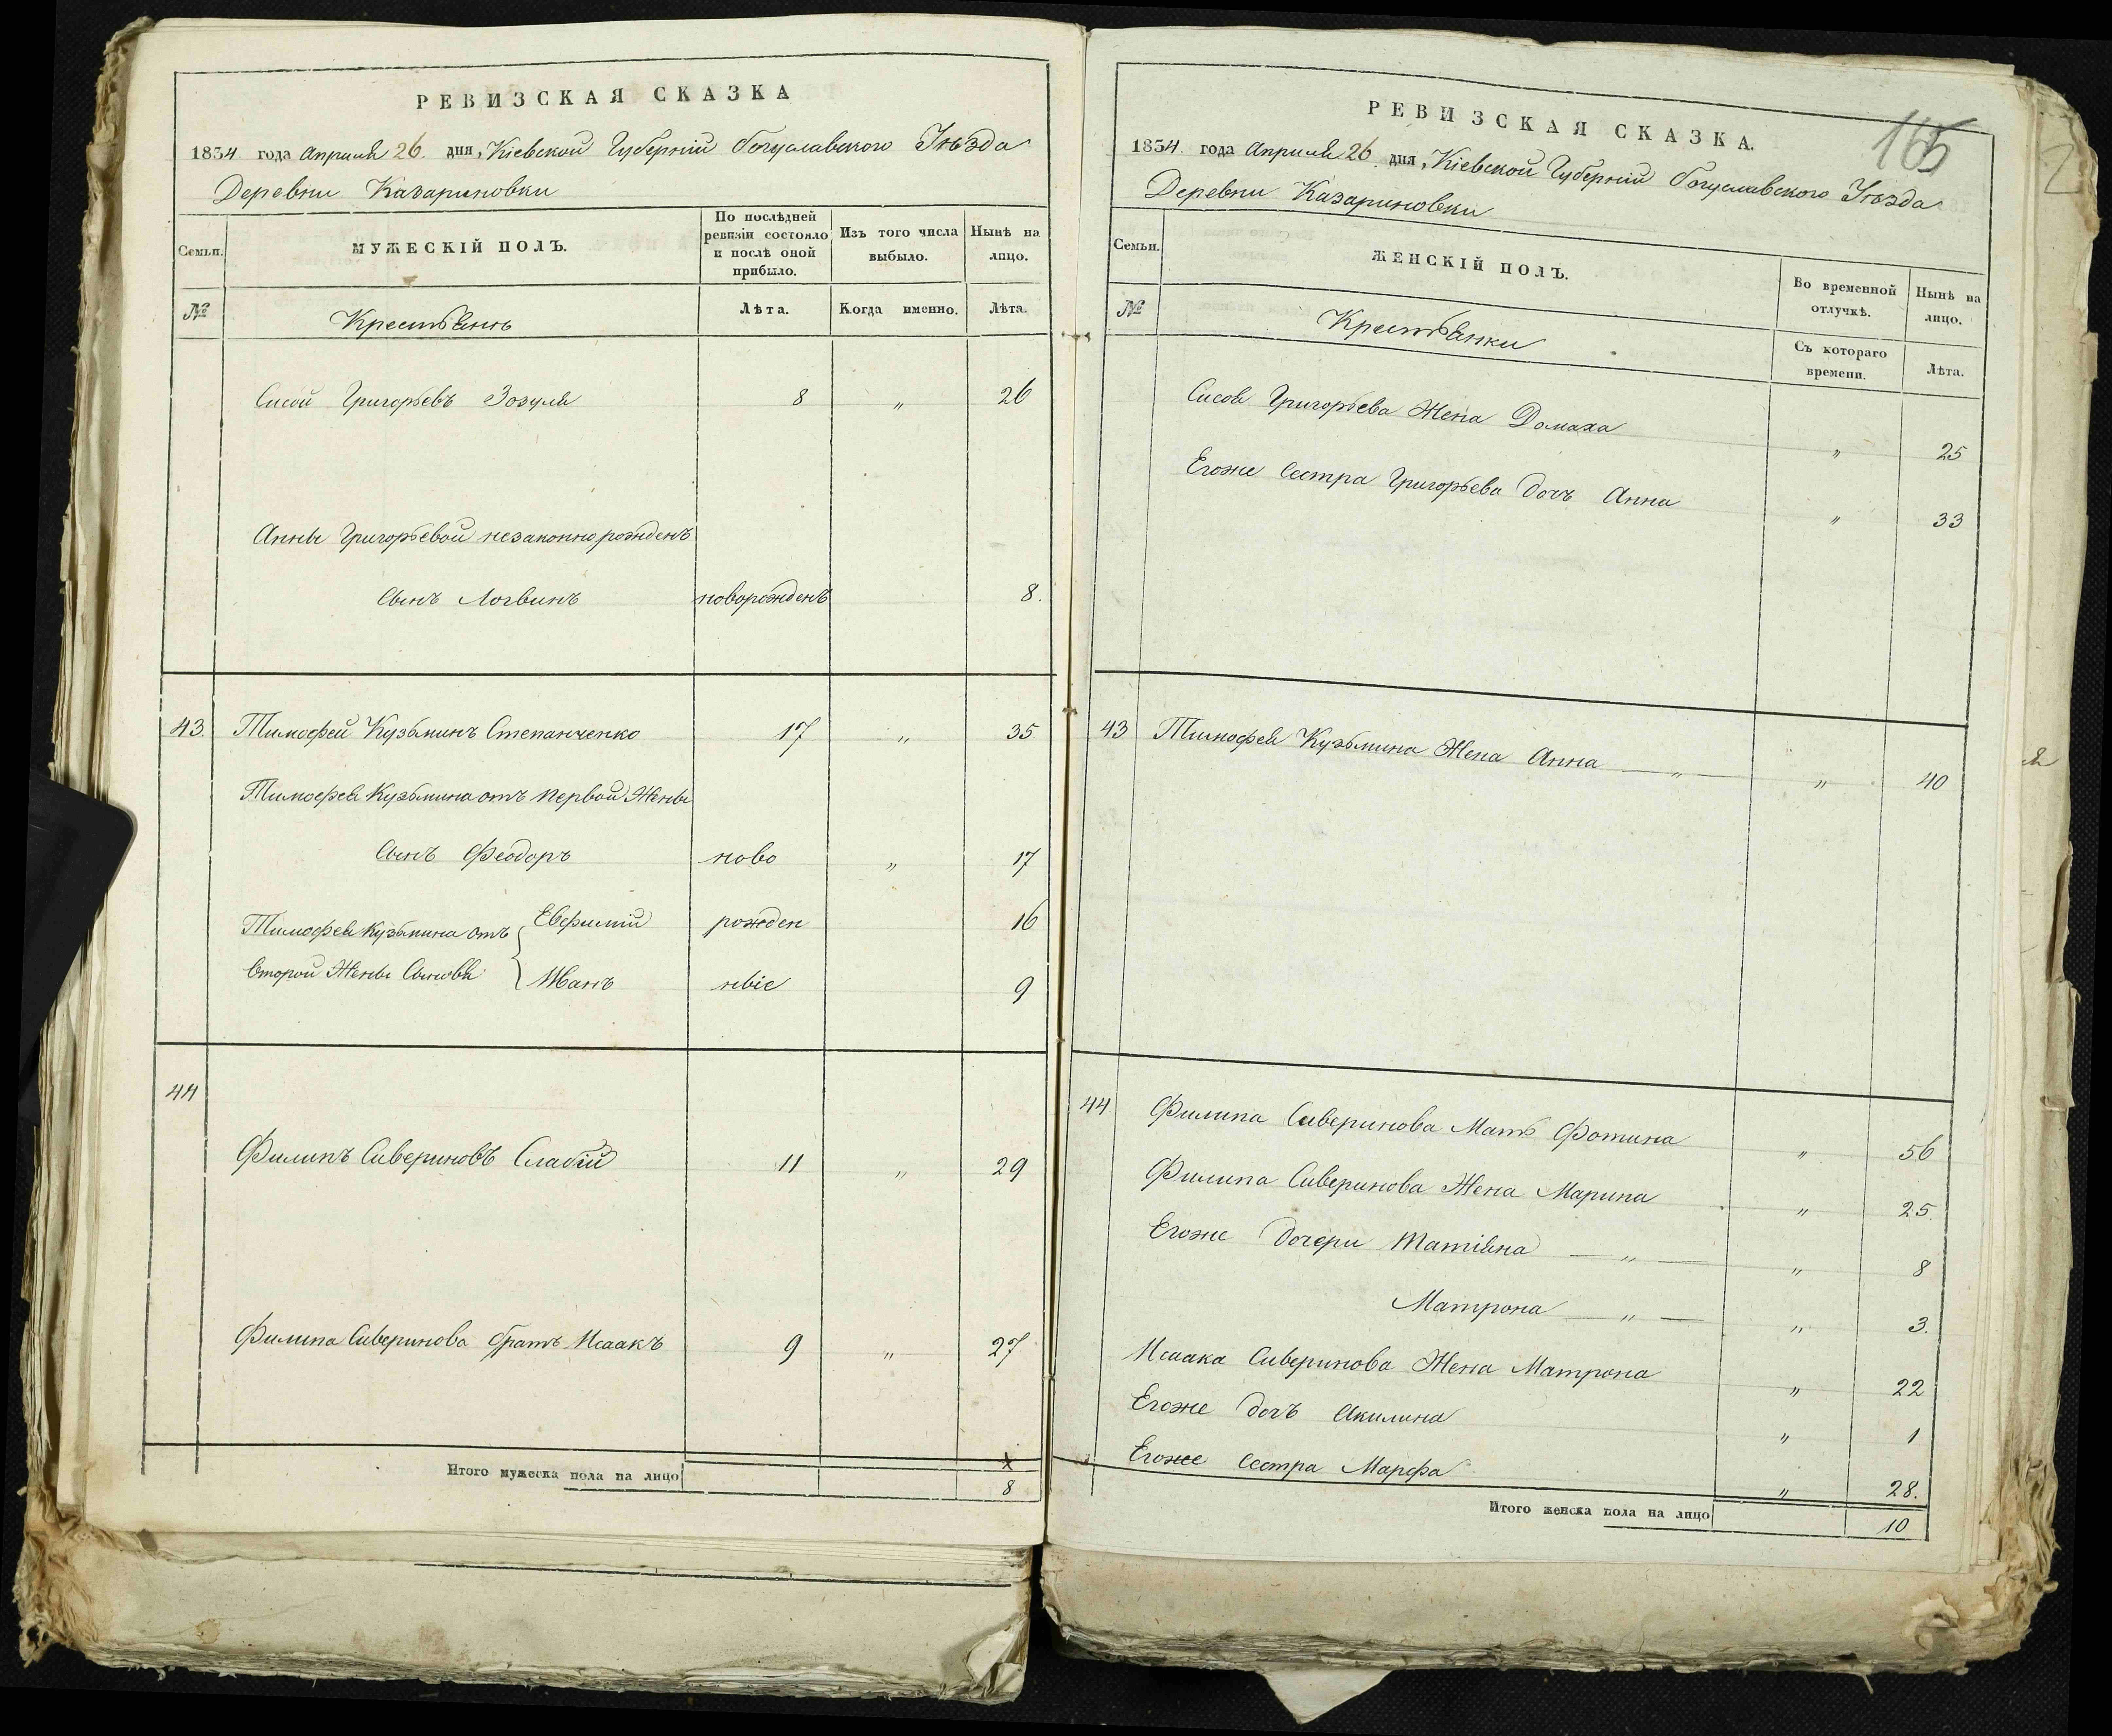 РЕВИЗСКАЯ СКАЗКА
1834 года Апреля 26. дня, Кіевской Губерніи Богуславского Уѣзда
Деревни Казариновки
Семьи.
МУЖЕСКІЙ ПОЛЪ.
По послѣдней
ревизіи состояло
и послѣ оной
прибыло.
Изъ того числа
выбыло.
Нынѣ на
лицо.
№
Крестьянъ
Лѣта.
Когда именно.
Лѣта.
Сисой Григорьевъ Зозуля 8 " 26
Анны Григорьевой незаконнорожденъ
Сынъ Логвинъ новорожденъ 8.
43. Тимофей Кузьминъ Степанченко 17 " 35
Тимофея Кузьмина отъ первой Жены
Сынъ Феодоръ ново " 17
Тимофея Кузьмина отъ Евфимій рожден 16
второй Жены Сыновья Иванъ ныіе 9
44
Филипъ Сивериновъ Слабій 11 " 29
Филипа Сиверинова братъ Исаакъ 9 " 27
Итого мужеска пола на лицо 8
РЕВИЗСКАЯ СКАЗКА.
165
1834. года Апреля 26. дня, Кіевской Губерніи Богуславского Уѣзда
Деревни Казариновки
Семьи.
ЖЕНСКІЙ ПОЛЪ.
Во временной
отлучкѣ.
Нынѣ на
лицо.
№
Крестьянки
Съ котораго
времени.
Лѣта.
Сисоя Григорьева Жена Домаха " 25
Егоже Сестра Григорьева дочь Анна " 33
43 Тимофея Кузьмина Жена Анна " " 40
44 Филипа Сиверинова Мать Фотина " 56
Филипа Сиверинова Жена Марина " 25.
Егоже Дочери Татіяна " " 8
Матрона " " 3.
Исаака Сиверинова Жена Матрона " 22
Егоже дочь Акилина " 1
Егоже Сестра Марфа " 28.
Итого женска пола на лицо 10